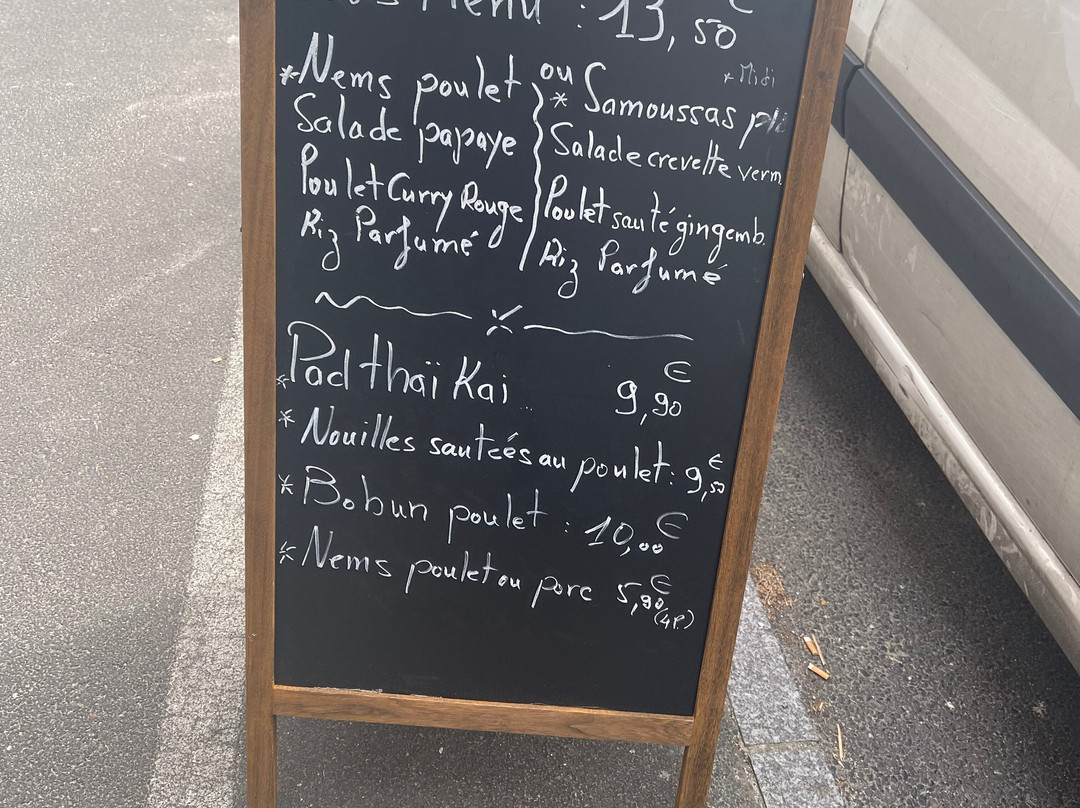 Menu : 13,50 €
* Midi
* Nems poulet
Salade papaye
Poulet Curry Rouge
Riz Parfumé
ou
* Samoussas
Salade crevette verm.
Poulet sauté gingemb.
Riz Parfumé
* Pad thaï Kai 9,90 €
* Nouilles sautées au poulet : 9,50 €
* Bobun poulet : 10,00 €
* Nems poulet ou porc 5,90 €
(4P.)